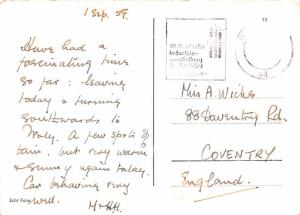 1 Sep. 59.
Have had a
fascinating time
so far: leaving
today & turning
southwards to
Italy. A few spots of
rain, but very warm
& sunny again today.
Car behaving very
well.
Miss A. Wickes
88 Daventry Rd.
COVENTRY
England.